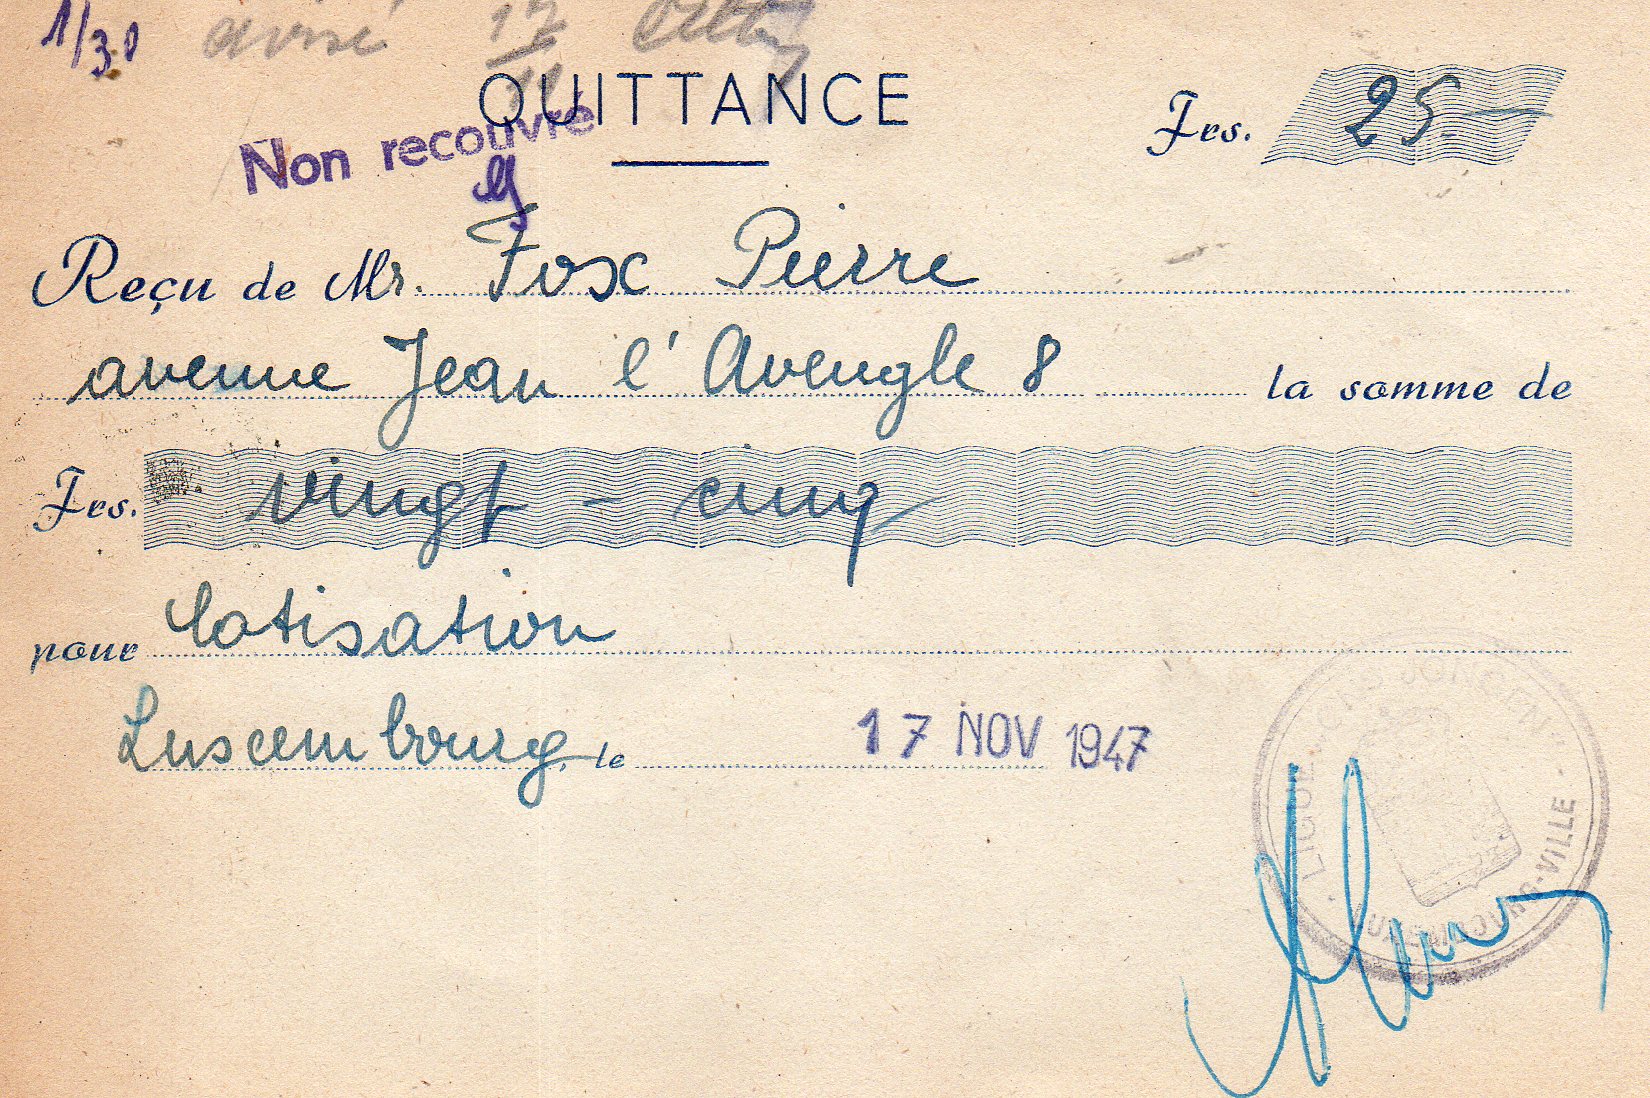 1/30 avisé 17/11
QUITTANCE
Frs. 25.—
Non recouvré
Reçu de Mr. Fox Pierre
avenue Jean l'Aveugle 8 la somme de
Frs. vingt - cinq
pour Cotisation
Luxembourg, le 17 NOV 1947
LIGUE
LUXEMBOURG-VILLE